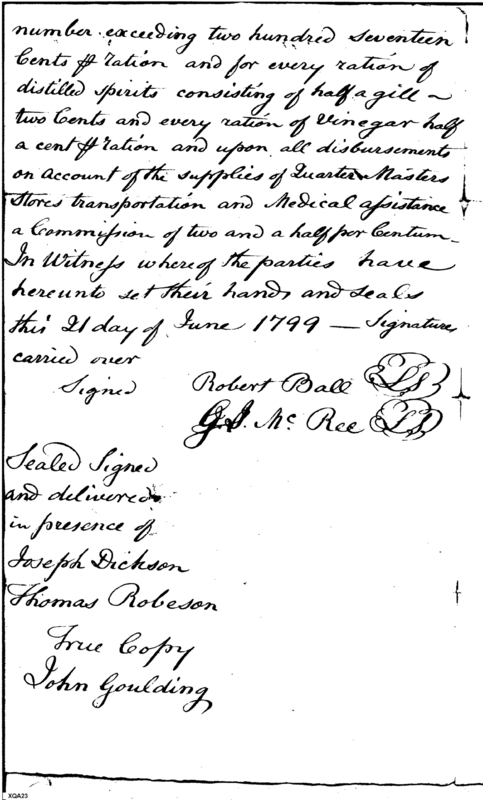 number exceeding two hundred seventeen
Cents ⅌ ration and for every ration of
distilled spirits consisting of half a gill –
two Cents and every ration of Vinegar half
a cent ⅌ ration and upon all disbursements
on account of the supplies of Quarter Masters
Stores transportation and Medical assistance
a Commission of two and a half per Centum –
In Witness whereof the parties have
hereunto set their hands and seals
this 21 day of June 1799 — Signatures
carried over
Signed Robert Ball LS
G. J. Mc Ree LS
Sealed Signed
and delivered
in presence of
Joseph Dickson
Thomas Robeson
True Copy
John Goulding
XQA23